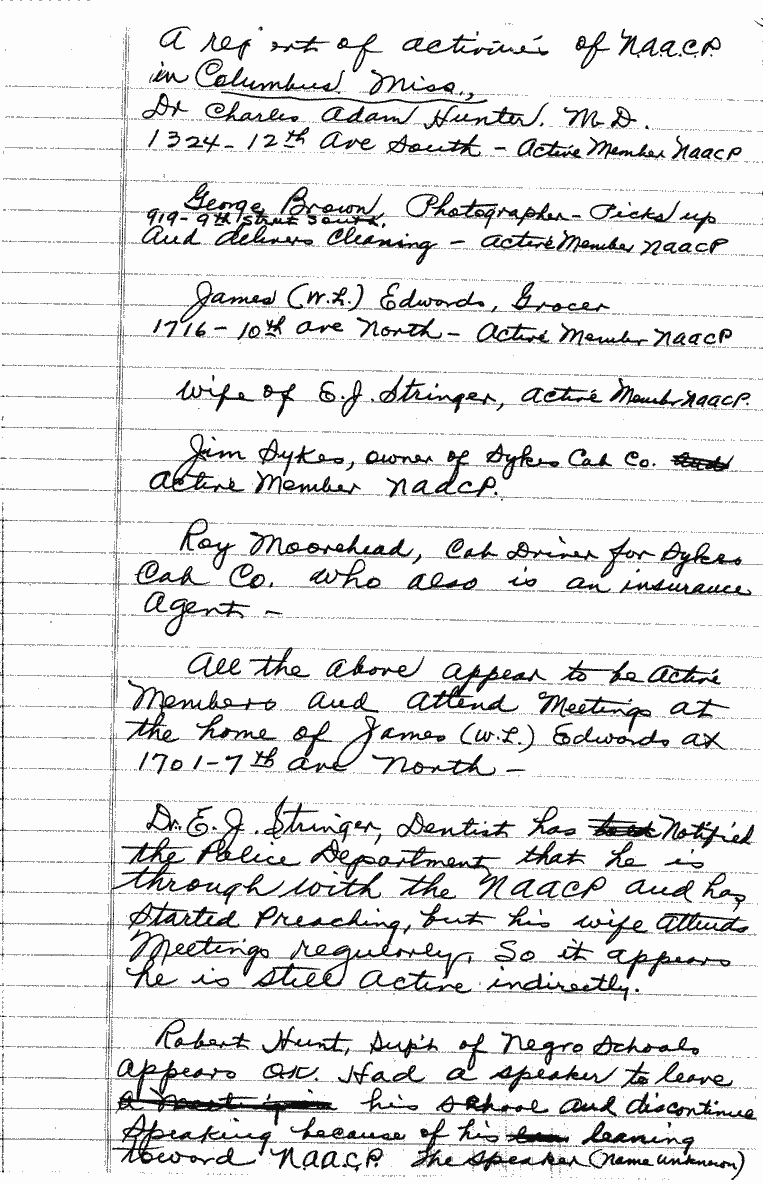 A rep ort of activities of N.A.A.C.P.
in Columbus Miss.,
Dr Charles Adam Hunter. M.D.
1324 - 12th Ave South - Active Member NAACP
George Brown, Photographer - Picks up
919 - 9th Street South,
And delivers Cleaning - Active Member NAACP
James (W.L.) Edwords, Grocer
1716 - 10th Ave North - Active Member NAACP
Wife of E.J. Stringer, Active Member NAACP.
Jim Dykes, owner of Dykes Cab Co.
Active Member NAACP.
Roy Moorehead, Cab Driver for Dykes
Cab Co. who also is an insurance
Agent -
All the above appear to be Active
Members and attend Meetings at
the home of James (W.L.) Edwords at
1701 - 7th Ave North -
Dr. E. J. Stringer, Dentist has Notified
the Police Department that he is
through with the NAACP and has
Started Preaching, but his wife attends
Meetings regularly. So it appears
he is still Active indirectly.
Robert Hunt, Sup't of Negro Schools
appears OK. Had a speaker to leave
his school and discontinue
Speaking because of his leaning
toward N.A.A.C.P. The speaker (name unknown)